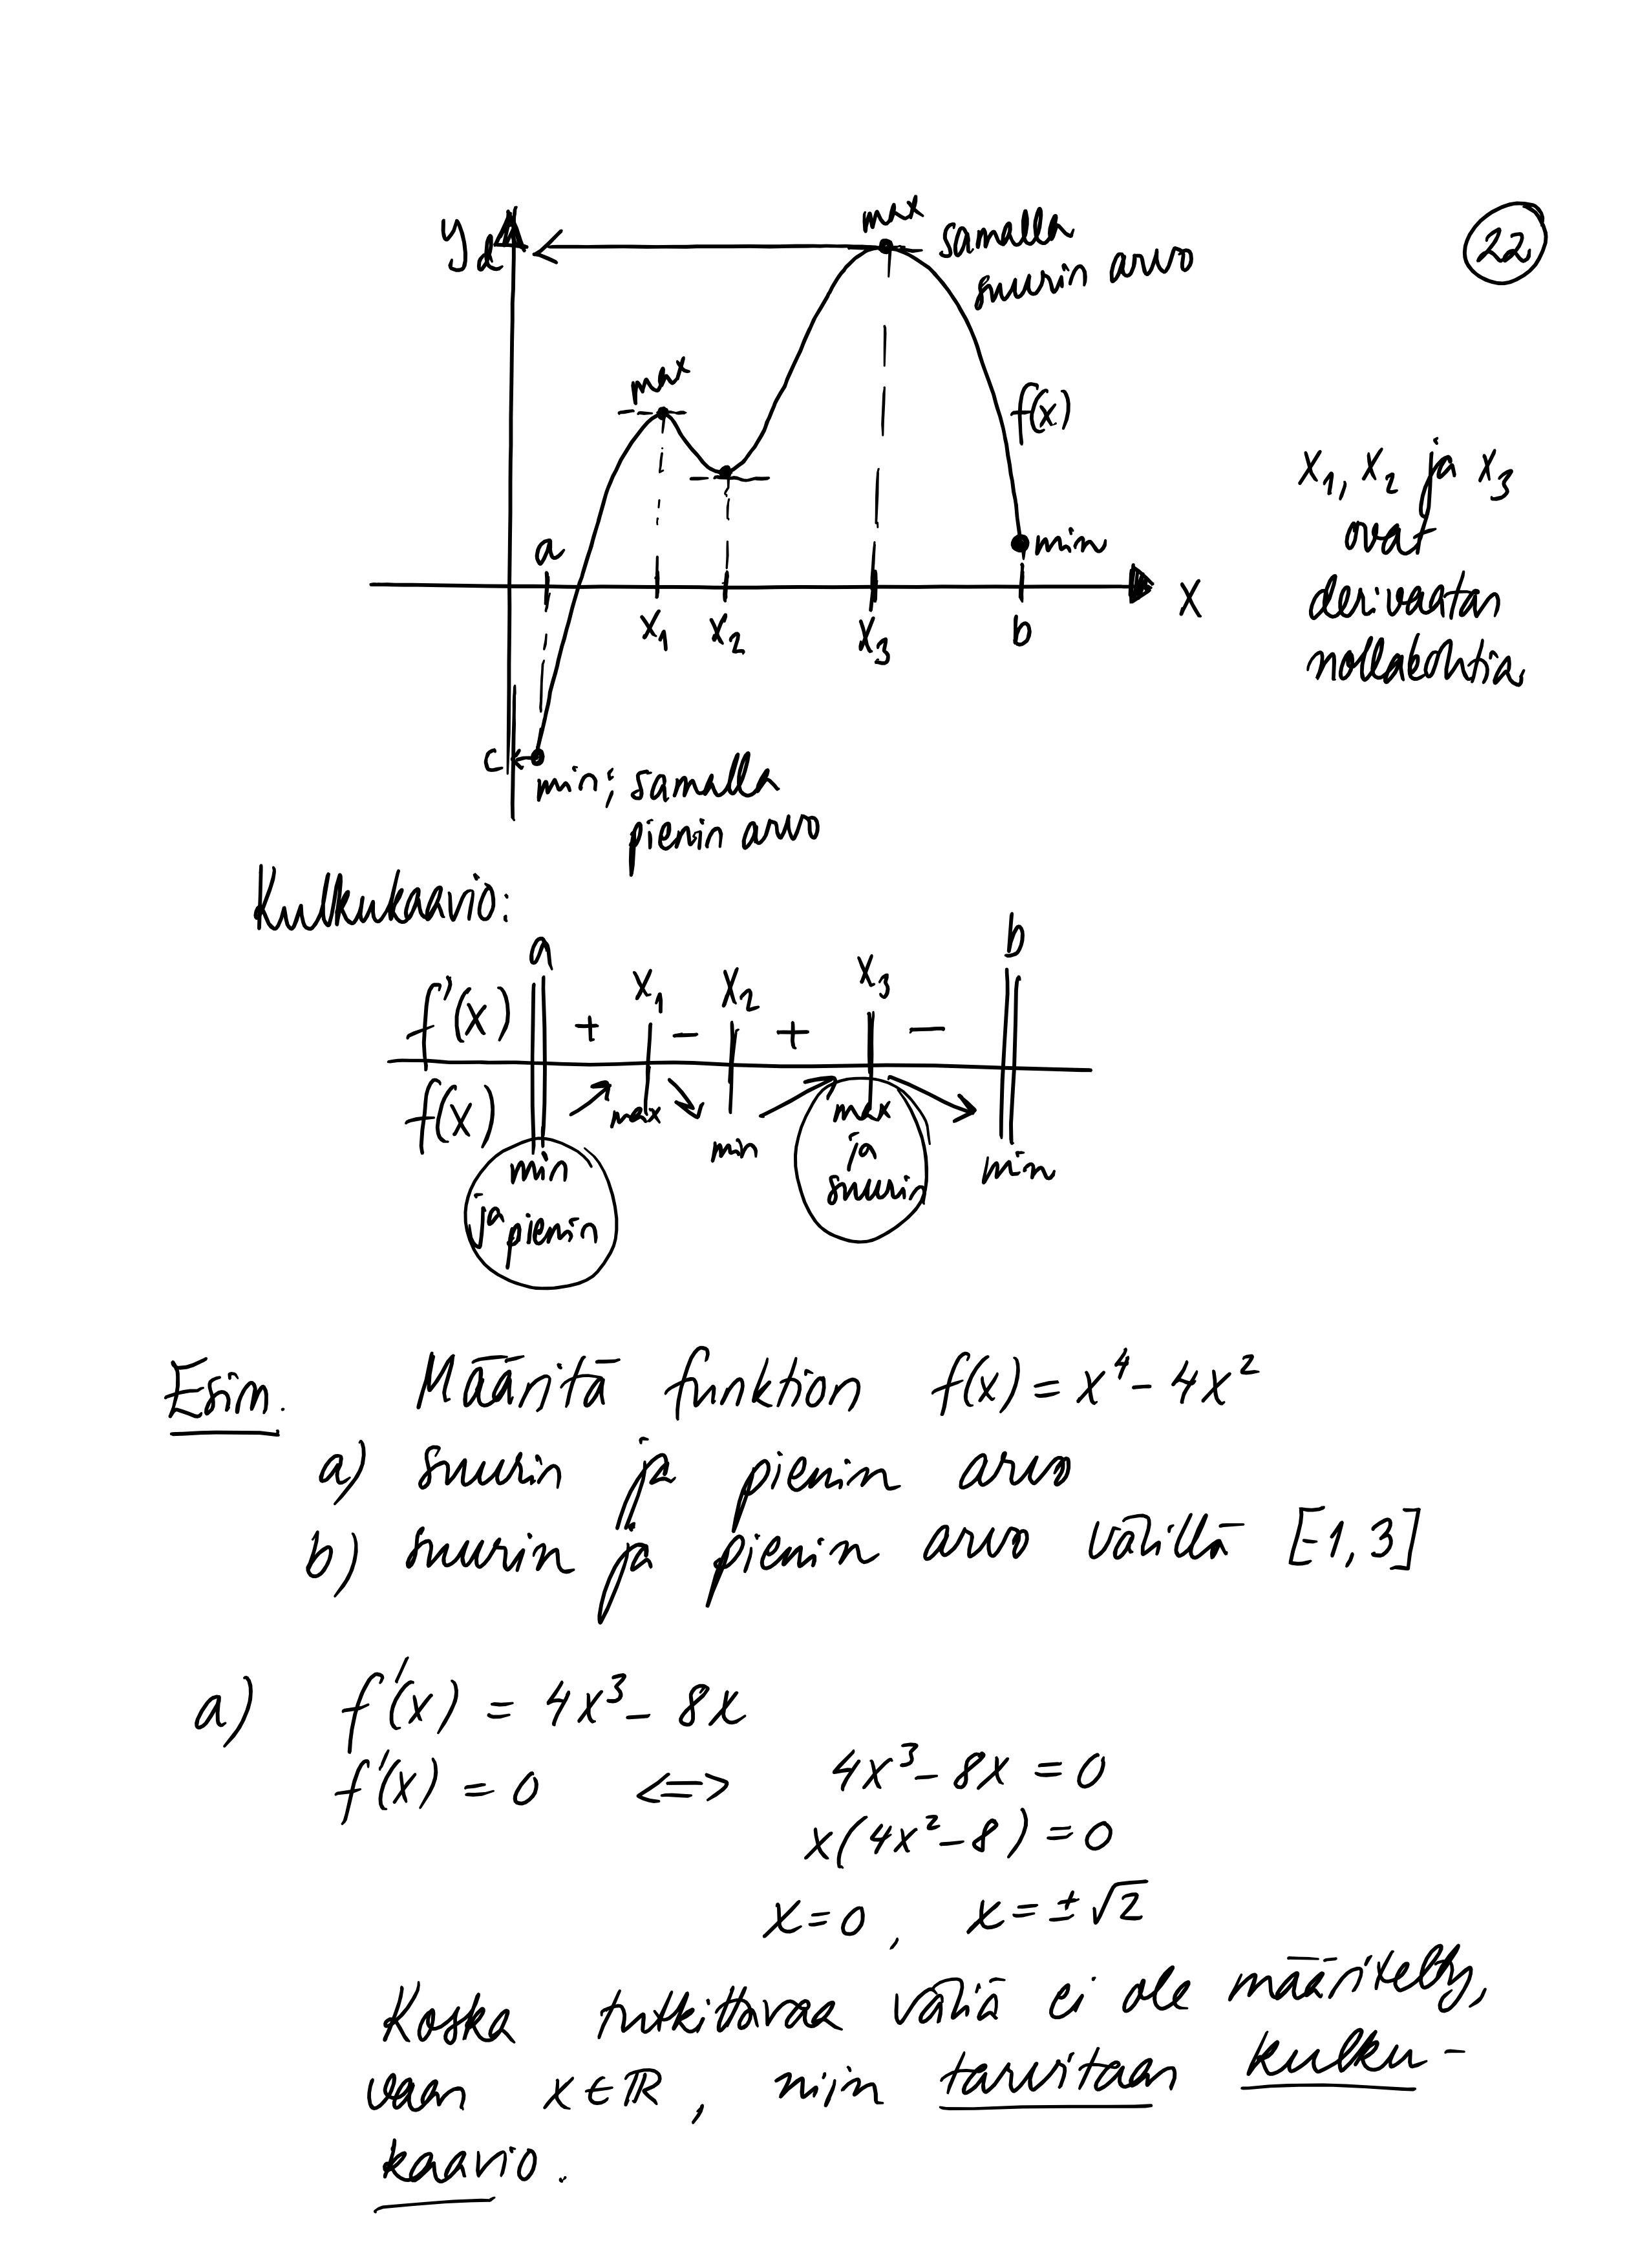 22
y
d
max
samalla
suurin arvo
max
f(x)
a
min
x
x₁
x₂
x₃
b
x₁, x₂ ja x₃
ovat
derivaatan
nollakohtia
c
min; samalla
pienin arvo
Kulkukaavio:
a
x₁
x₂
x₃
b
f'(x) + - + -
f(x)
max
min
max
ja
suurin
min
min
ja pienin
Esim. Määritä funktion f(x) = x⁴ - 4x²
a) suurin ja pienin arvo
b) suurin ja pienin arvo välillä [-1, 3]
a) f'(x) = 4x³ - 8x
f'(x) = 0 <=> 4x³ - 8x = 0
x(4x² - 8) = 0
x = 0 , x = ±√2
Koska tutkittavaa väliä ei ole määritelty,
vaan x ∈ ℝ , niin tarvitaan kulku-
kaavio.